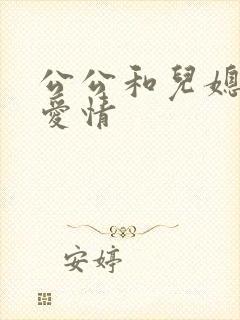 公公和兒媳
愛情
安婷